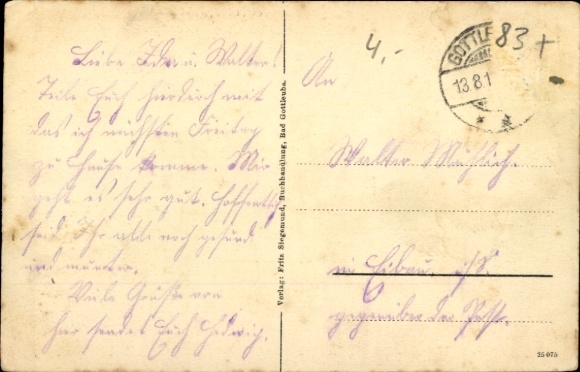 Liebe Ida u. Walter!
Teile Euch hierdurch mit
das ich nächsten Freitag
zu Hause komme. Mir
geht es sehr gut. Hoffentlich
seid Ihr alle noch gesund
und munter.
Viele Grüße von
hier sendet Euch Hedwig.
Verlag: Fritz Siegemund, Buchhandlung, Bad Gottleuba.
4,-
83+
GOTTLE
13.8.1
An
Walter
in Eibau i/S.
gegenüber der Post.
25 075